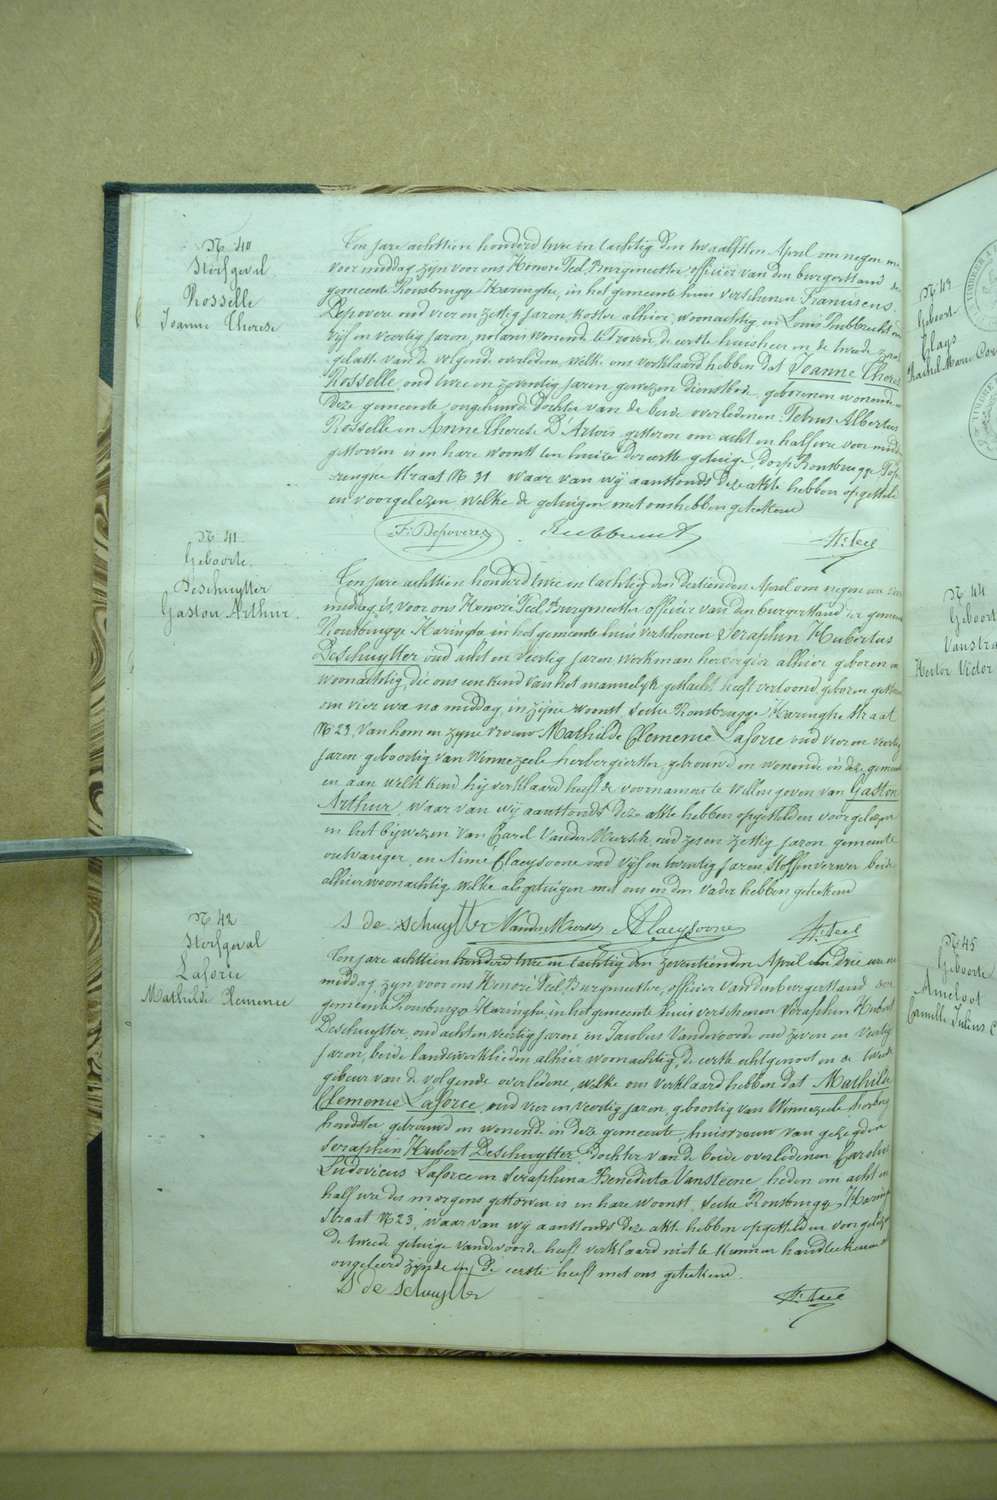 N 40
Sterfgeval
Rosselle
Joanne Therese
Ten jare achttien honderd twee en tachtig den twaalfsten April om negen ure
voor middag zijn voor ons Honoré Teel Burgmeester officier van den burgerstand der
gemeente Rousbrugge Haringhe, in het gemeente huis verschenen Franciscus
Depovere oud vier en zestig jaren, koster alhier woonachtig en Louis Lubbrecht oud
vijf en veertig jaren, notaris wonende te Proven, de eerste huisheer en de tweede
gelaste van de volgende overledene, welke ons verklaard hebben dat Joanne Therese
Rosselle, oud twee en zeventig jaren gewezen dienstbode, geboren en wonende in
deze gemeente, ongehuwd Dochter van de beide overledenen Petrus Albertus
Rosselle en Anne Therese D'Artois gisteren om acht en half ure voor middag
gestorven is en hare woonst ten huize der eerste getuige, dorp Rousbrugge
straat N 31 waar van wij aanstonds deze akte hebben opgesteld
en voorgelezen welke de getuigen met ons hebben geteekend
F: Depovere
Lubbrecht
H: Teel
N 41
Geboorte.
Deschuytter
Gaston Arthur.
Ten jare achttien honderd twee en tachtig den dertienden April om negen ure voor
middag is voor ons Honoré Teel Burgmeester officier van den burgerstand der gemeente
Rousbrugge Haringhe in het gemeente huis verschenen Seraphin Hubertus
Deschuytter oud acht en veertig jaren, werkman herbergier alhier geboren en
woonachtig, die ons een kind van het mannelijk geslacht heeft vertoond, geboren gisteren
om vier ure na middag, in zijne woonst sectie Rousbrugge Haringhe straat
N 23, van hem en zijne vrouw Mathilde Clemence Laforce oud vier en veertig
jaren geboortig van Winnezeele herbergierster, getrouwd en wonende in deze gemeente
en aan welk kind hij verklaard heeft de voornamens te willen geven van Gaston
Arthur, waar van wij aanstonds deze akte hebben opgesteld en voorgelezen
in het bijwezen van Carel Vander Meersch, oud zes en zestig jaren, gemeente
ontvanger, en Aimé Claeysoone oud vijf en twentig jaren Stoffenverwer beide
alhier woonachtig welke als getuigen met ons en den vader hebben geteekend
S de schuytter
A Claeysoone
H: Teel
N 42
Sterfgeval
Laforce
Mathilde Clemence
Ten jare achttien honderd twee en tachtig den zeventienden April om drie ure na
middag, zijn voor ons Honoré Teel, Burgmeester, officier van den burgerstand der
gemeente Rousbrugge Haringhe, in het gemeente huis verschenen Seraphin Hubert
Deschuytter, oud acht en veertig jaren en Jacobus Vandevoorde oud zeven en veertig
jaren, beide landswerklieden alhier woonachtig, de eerste echtgenoot en de tweede
gebuer van de volgende overledene, welke ons verklaard hebben dat Mathilde
Clemence Laforce, oud vier en veertig jaren, geboortig van Winnezeele herberg
houdster, getrouwd en wonende in deze gemeente, huisvrouw van gezegden
Seraphin Hubert Deschuytter, Dochter van de beide overledenen Carolus
Ludovicus Laforce en Seraphina Benedicta Vansteene, heden om acht en
half ure des morgens gestorven is en hare woonst, sectie Rousbrugge Haringhe
Straat N 23, waar van wij aanstonds deze akt hebben opgesteld en voorgelezen
de tweede getuige Vandevoorde heeft verklaard niet te kunnen handteekenen als
ongeleerd zijnde en de eerste heeft met ons geteekend.
S de schuytter
H: Teel
N 43
Geboorte
Clays
Rachel Marie
N 44
Geboorte
Hector Victor
N 45
Geboorte
Ameloot
Camille Julius C